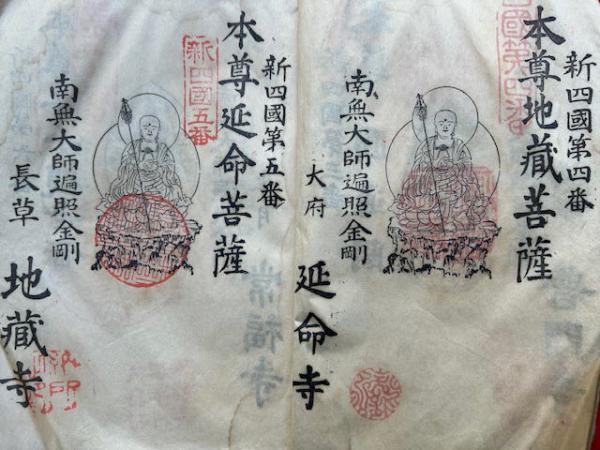 新四國第四番
本尊地藏菩薩
南無大師遍照金剛
大府
延命寺
新四國第五番
本尊延命菩薩
新四國五番
南無大師遍照金剛
長草
地藏寺